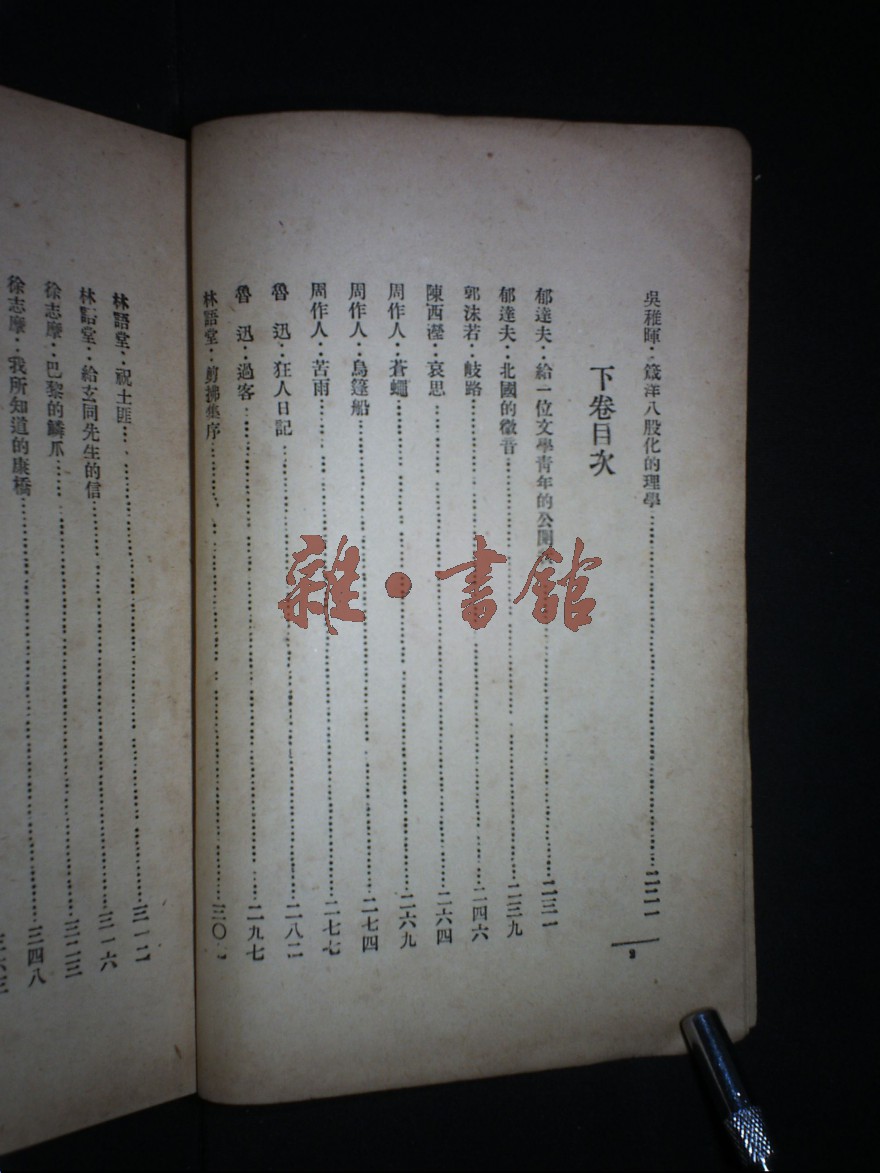 吳稚暉：箴洋八股化的理學……二二一
下卷目次
郁達夫：給一位文學青年的公開……二三一
郁達夫：北國的微音……二三九
郭沫若：歧路……二四六
陳西瀅：哀思……二六四
周作人：蒼蠅……二六九
周作人：烏篷船……二七四
周作人：苦雨……二七七
魯　迅：狂人日記……二八二
魯　迅：過客……二九七
林語堂：剪拂集序……三〇
林語堂：祝土匪……三一二
林語堂：給玄同先生的信……三一六
徐志摩：巴黎的鱗爪……三二三
徐志摩：我所知道的康橋……三四八
雜·書館